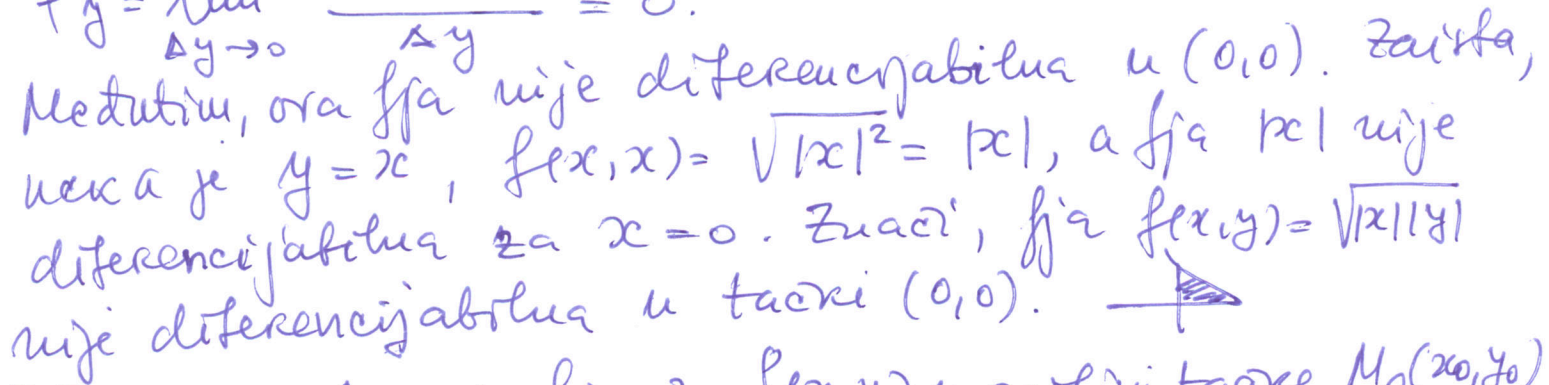 f'y = lim ————— = 0.
Δy→0 Δy
Međutim, ova fja nije diferencijabilna u (0,0). Zaista,
neka je y = x, f(x,x) = √|x|² = |x|, a fja |x| nije
diferencijabilna za x = 0. Znači, fja f(x,y) = √|x||y|
nije diferencijabilna u tački (0,0).
tačke M₀(x₀,y₀)